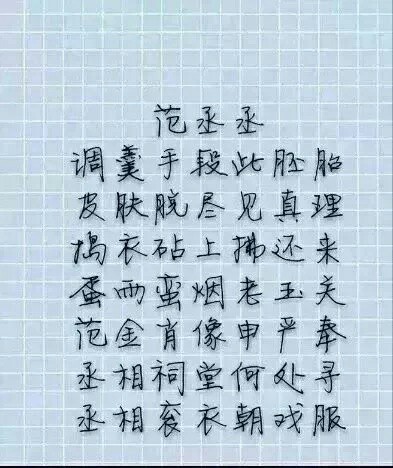 范丞丞
调羹手段此胚胎
皮肤脱尽见真理
捣衣砧上拂还来
蛋雨蛮烟老玉关
范金肖像申严奉
丞相祠堂何处寻
丞相衮衣朝戏服